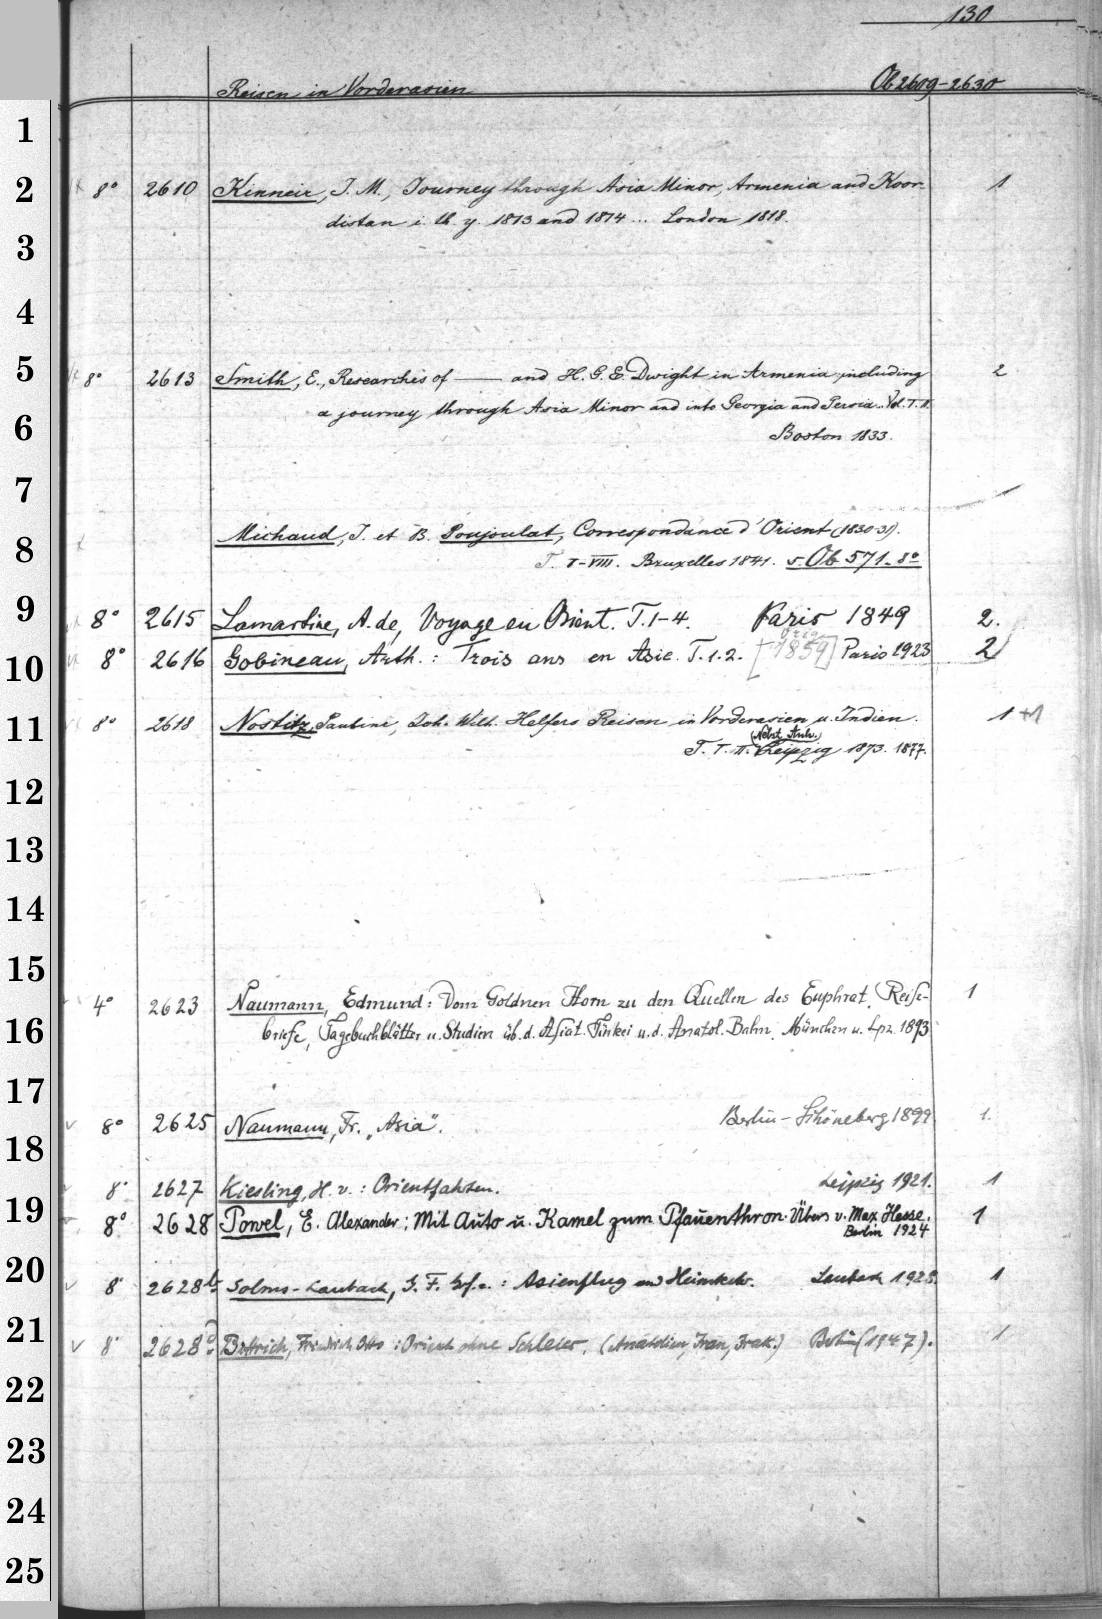 130
Reisen in Vorderasien Ob 2609-2630
1
2 8° 2610 Kinneir, J. M., Journey through Asia Minor, Armenia and Koor- 1
distan i. th. y. 1813 and 1814 ... London 1818.
3
4
5 8° 2613 Smith, E., Researches of —— and H. G. E. Dwight in Armenia including 2
a journey through Asia Minor and into Georgia and Persia.. Vol. I. II.
6 Boston 1833.
7
8 Michaud, J. et B. Poujoulat, Correspondance d'Orient (1830-31).
T. I-VIII. Bruxelles 1841. s. Ob 571. 8°
9 8° 2615 Lamartine, A. de, Voyage en Orient. T. 1-4. Paris 1849 2.
10 8° 2616 Gobineau, Arth.: Trois ans en Asie. T. 1. 2. [1859] Paris 1923 2
11 8° 2618 Nostitz, Pauline, Joh. Wilh. Helfers Reisen in Vorderasien u. Indien. 1 +1
(Nebst Anh.)
T. I. II. Leipzig 1873. 1877.
12
13
14
15 4° 2623 Naumann, Edmund: Vom Goldnen Horn zu den Quellen des Euphrat. Reise- 1
16 briefe, Tagebuchblätter u. Studien üb. d. Asiat. Türkei u. d. Anatol. Bahn. München u. Lpz. 1893
17
8° 2625 Naumann, Fr. „Asia". Berlin-Schöneberg 1899 1.
18
8° 2627 Kiesling, H. v.: Orientfahrten. Leipzig 1921. 1
19 8° 2628 Powel, E. Alexander: Mit Auto u. Kamel zum Pfauenthron. Übers v. Max Hesse. 1
Berlin 1924
20 8° 2628b Solms-Laubach, : Asienflug und Heimkehr. Laubach 1925. 1
21 8° 2628c Dittrich, Friedrich Otto: Orient ohne Schleier. (Anatolien, Iran, Irak.) Berlin (1947). 1
22
23
24
25